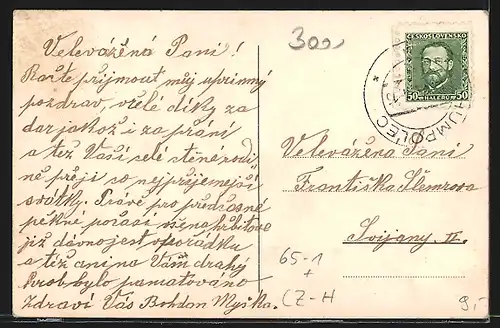 Velevážená Paní!
Račte přijmout můj upřímný
pozdrav, vřelé díky za
dar jakož i za přání
a též Vaší celé ctěné rodi-
ně přeji co nejpříjemnejší
svátky. Právě pro předčasné
pěkné počasí všena hřbitově
již dávno jest v pořádku
a též ani na Vám drahý
hrob bylo pamatováno
Zdraví Vás Bohdan Myška.
300
ČESKOSLOVENSKO
50 HALÉŘŮ 50
HUMPOLEC
Velevážená Paní
Františka Šlemrova
Svijany II.
65-1
+
CZ-H
9,-